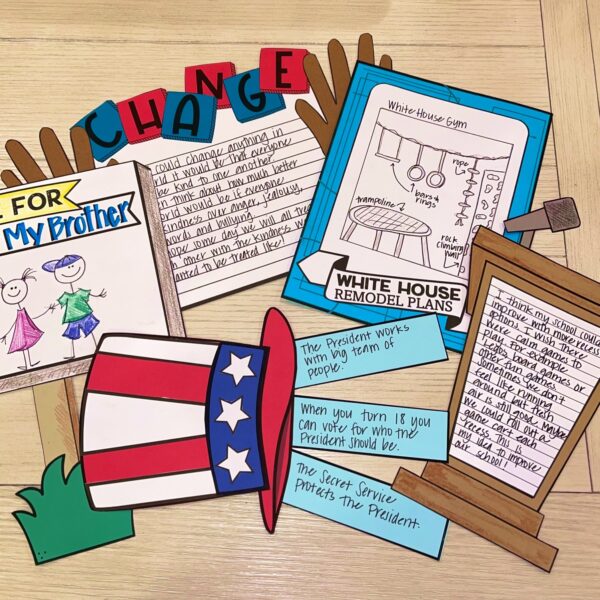 CHANGE
could change anything in
and it would be that everyone
be kind to one another
think about how much better
world would be if everyone
kindness over anger, jealousy,
words and bullying.
hope some day we will all treat
other with the kindness we
to be treated like!
FOR
My Brother
White House Gym
rope
bars &
rings
trampoline
rock
climbing
wall
WHITE HOUSE
REMODEL PLANS
The President works
with big team of
people.
When you turn 18 you
can vote for who the
President should be.
The Secret Service
protects the President.
I think my school could
improve with more recess
options. I wish there
were calm games to
play. For example
legos, board games or
other fun games.
Sometimes we don't
feel like running
around but fresh
air is still good. Maybe
we could roll out a
game cart each
recess. This is
my idea to improve
our school!